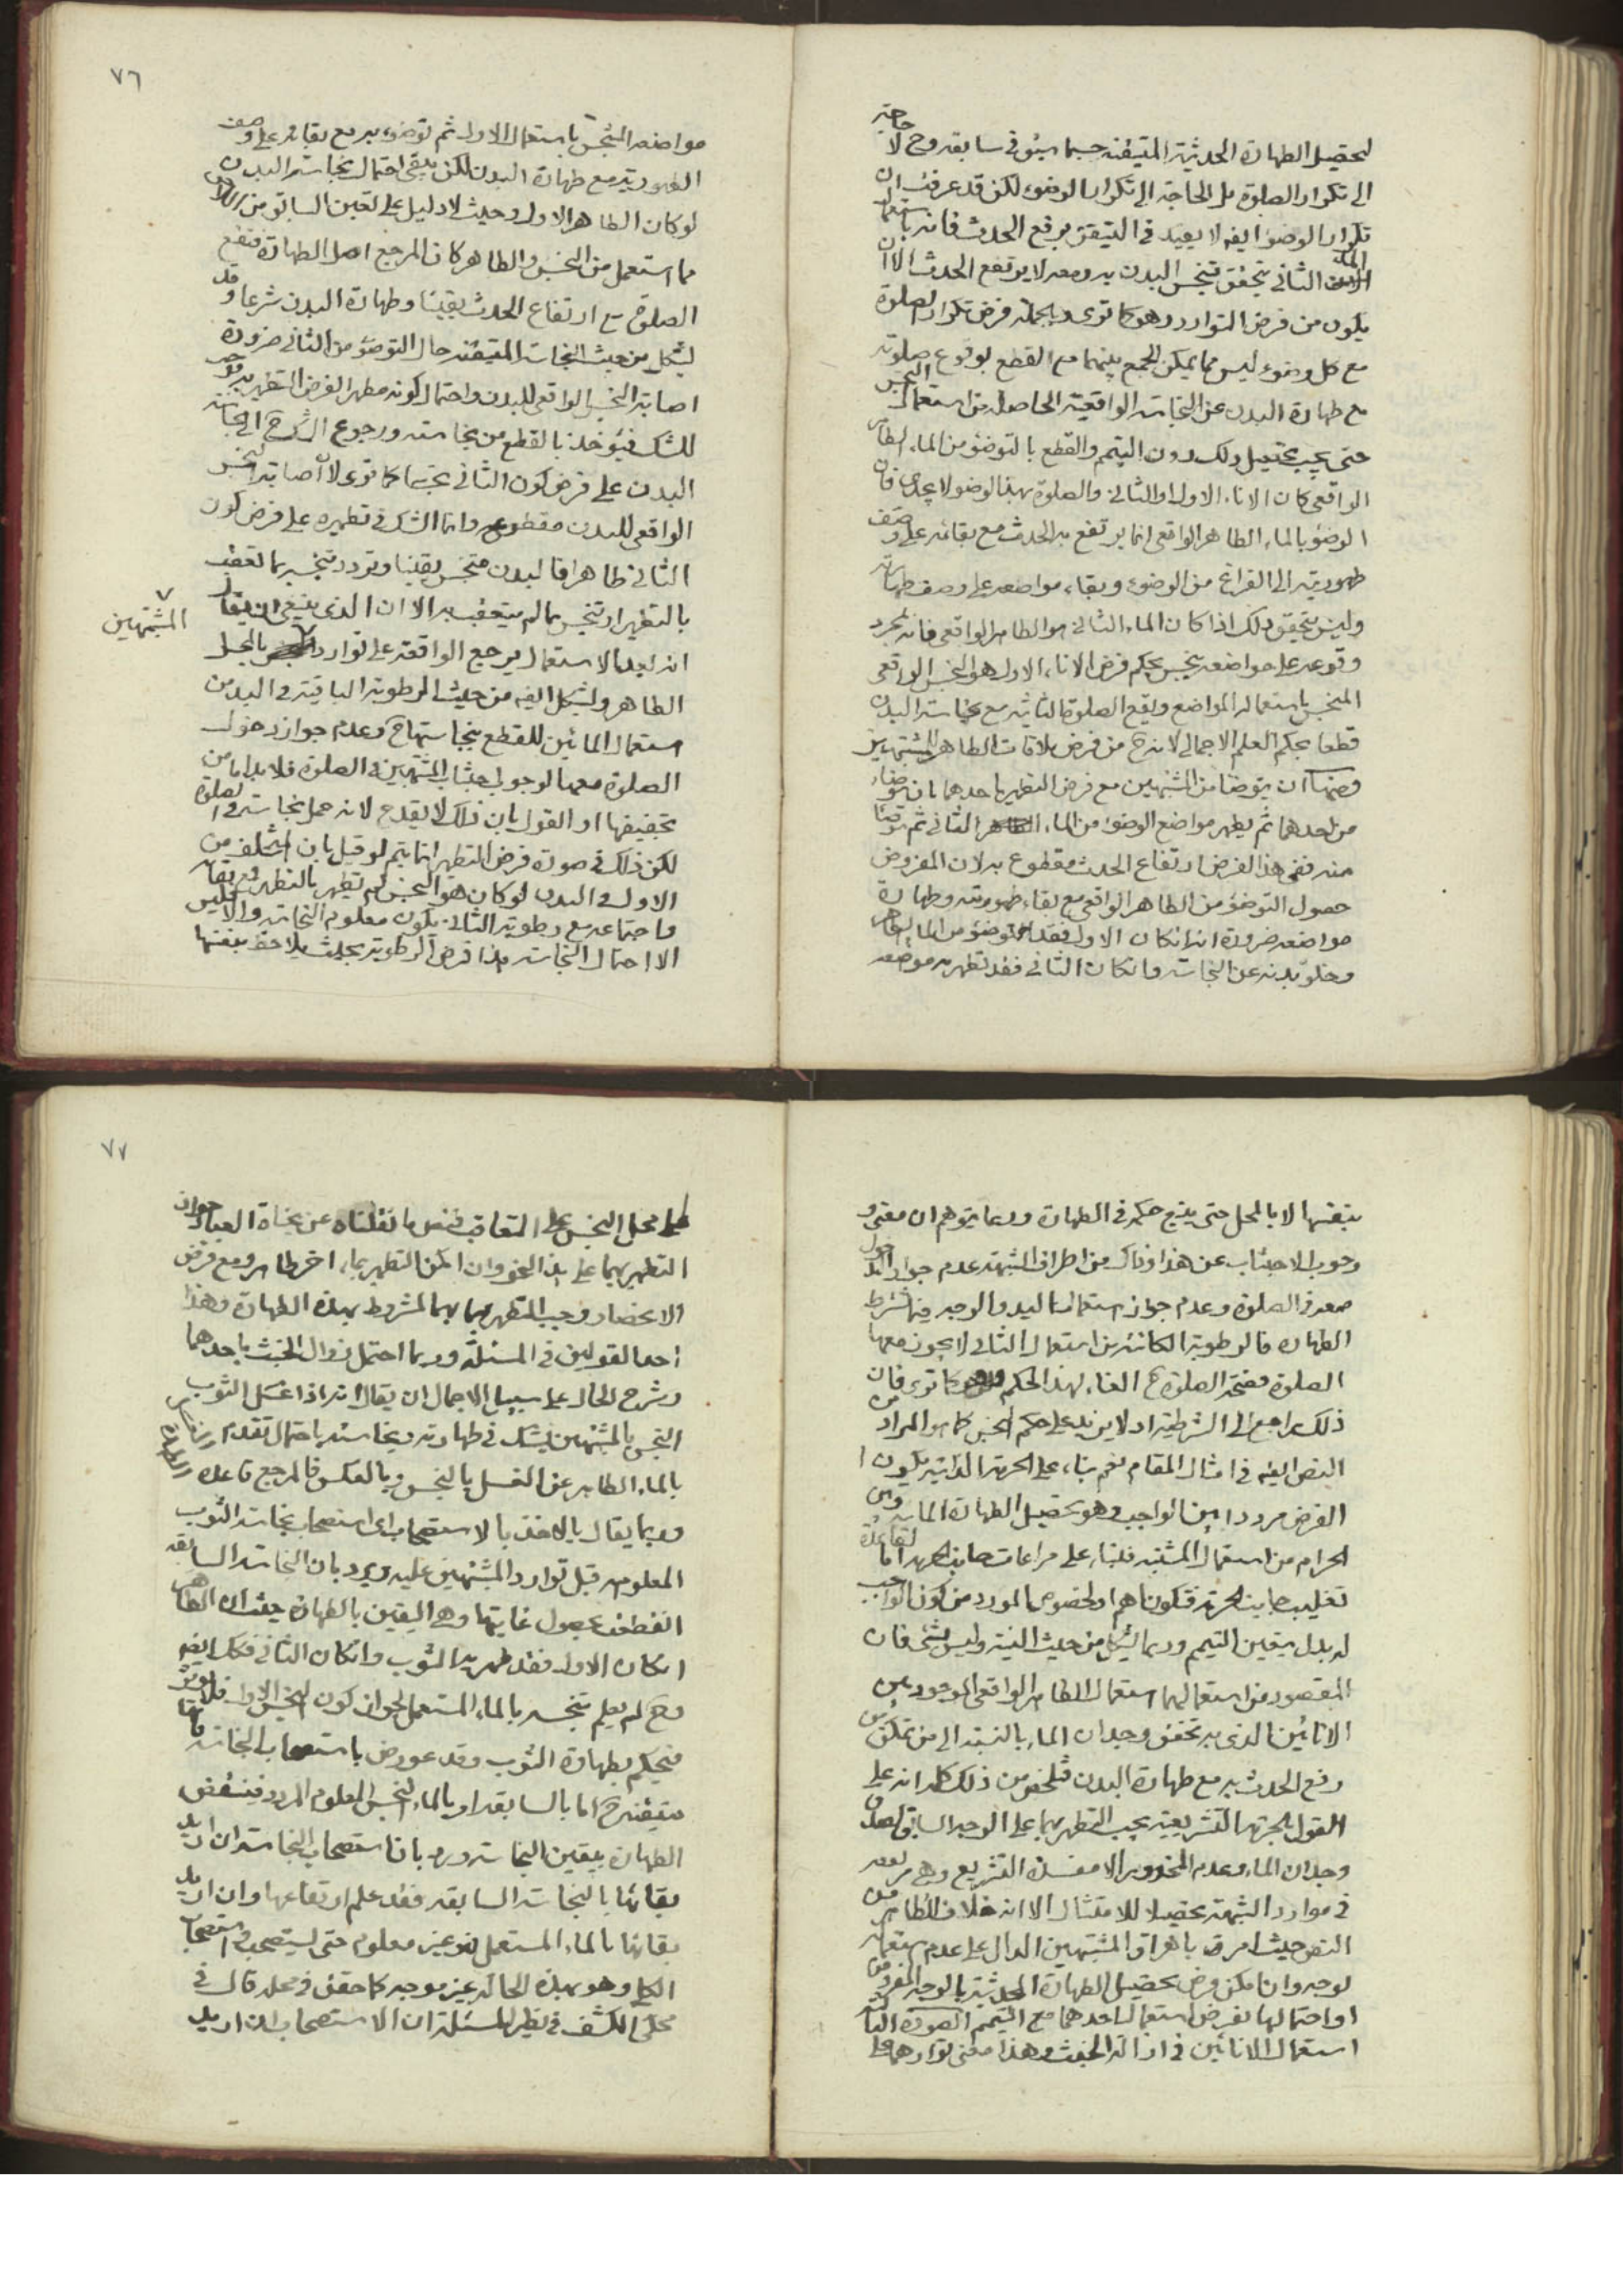 لتحصيل الطهارة الحدثية المتيقنه حسبما سبق في سابقه وح لا حاجة
الى تكرار الصلوة بل الحاجة الى تكرار الوضوء لكن قد عرفت ان
تكرار الوضوء ايضه لا يفيد في التيقن برفع الحدث فانه باستعمال
الماء الثاني يتحقق تنجس البدن به ومعه لا يرتفع الحدث الا ان
يكون من فرض التوارد وهو كما ترى وبالجملة فرض تكرار الصلوة
مع كل وضوء ليس مما يمكن الجمع بينهما مع القطع بوقوع صلوته
مع طهارة البدن عن النجاسة الواقعية الحاصلة من استعمال النجس
حتى يجب تحصيل ذلك دون التيمم والقطع بالتوضؤ من الماء الطاهر
الواقعى كان الاناء الاول او الثاني والصلوة بهذا الوضوء لا يجدى فان
الوضوء بالماء الطاهر الواقعى انما يرتفع به الحدث مع بقائه على وصف
طهوريته الى الفراغ من الوضوء وبقاء مواضعه على وصف طهارته
وليس يتحقق ذلك اذا كان الماء الثاني هو الطاهر الواقعى فانه بمجرد
وقوعه على مواضعه ينجس بحكم فرض الاناء الاول هو النجس الواقعى
المنجس باستعماله المواضع ويقع الصلوة الثانية مع نجاسة البدن
قطعا بحكم العلم الاجمالى لانه ح من فرض ملاقات الطاهر المشتبهين
ومنها ان يتوضأ من المشتبهين مع فرض التطهير باحدهما بان توضاء
من احدهما ثم يطهر مواضع الوضوء من الماء الثاني ثم توضأ
منه ففى هذا الفرض ارتفاع الحدث مقطوع به لان المفروض
حصول التوضؤ من الطاهر الواقعى مع بقاء طهوريته وطهارة
مواضعه ضرورة انه ان كان الاول فقد توضؤ من الماء الطاهر
وخلو بدنه عن النجاسة وان كان الثاني فقد تطهر به موضعه
٧٦
مواضعه النجس باستعمال الاول ثم توضوء به مع بقائه على وصف
الطهورية مع طهارة البدن لكن يبقى احتمال نجاسة البدن
لو كان الطاهر الاول وحيث لا دليل على تعين السابق من اللاحق
مما استعمل من النجس والطاهر كان المرجع اصل الطهارة فتقع
الصلوة مع ارتفاع الحدث يقينا وطهارة البدن شرعا وقد
يشكل من حيث النجاسة المتيقنه حال التوضؤ من الثانى ضرورة
اصابة النجس الواقعى للبدن واحتمال كونه مطهرا لفرض التطهير به
للشك فيؤخذ بالقطع من نجاسته ورجوع الشك ح الى نجاسة
البدن على فرض كون الثاني نجسا كما ترى لان اصابة النجس
الواقعى للبدن مقطوع وانما الشك في تطهيره على فرض كون
الثاني طاهرا فالبدن متنجس يقينا وتردد تنجسه بما تعقب
بالتطهير او تنجس بما لم يتعقب به الا ان الذى ينبغي ان يقال
انه بعد الاستعمال يرجع الواقعة على توارد المشتبهين بالمحل
الطاهر ويشكل ايضه من حيث الرطوبة الباقية في البدن من
استعمال المائين للقطع بنجاستها ح وعدم جواز دخول
الصلوة معها لوجوب اجتناب المشتبهين في الصلوة فلا بد اما من
تجفيفها او القول بان ذلك لا يقدح لانه حمل نجاسة في الصلوة
لكن ذلك في صورة فرض التطهر انما يتم لو قيل بان المتخلف من
الاول في البدن لو كان هو النجس لم تطهر بالتطهر
واجتماعه مع رطوبة الثاني يكون معلوم النجاسة والا فليس
الا احتمال النجاسة هذا فرض الرطوبة بحيث يلاحظ بنفسها
بنفسها لا بالمحل حتى يتبع حكمه في الطهارة وربما يتوهم ان معنى
وجوب الاجتناب عن هذا وذاك من اطراف الشبهة عدم جواز الدخول
معه في الصلوة وعدم جواز استعمال اليد والوجه فيما شرط
الطهارة فالرطوبة الكائنة من استعمال الثاني لا يجوز معها
الصلوة فصحة الصلوة ح الغاء لهذا الحكم وهو كما ترى فان
ذلك راجع الى الشرطية او لا يزيد على حكم النجس كما هو المراد من
النص ايضه في امثال المقام نعم بناء على الحرمة الذاتية يكون
الفرض مرددا بين الواجب وهو تحصيل الطهارة المائية وبين
الحرام من استعمال المشتبه فلبناء على مراعات جانب الحرمة اما لقاعدة
تغليب جانب الحرمة فتكون اهم او لخصوص المورد من كون الواجب
له بدل يتعين التيمم وربما يشكل من حيث النية وليس بشئ فان
المقصود من استعمالهما استعمال الطاهر الواقعى الموجود بين
الانائين الذى به تحقق وجدان الماء بالنسبة الى من تمكن من
رفع الحدث به مع طهارة البدن فتلخص من ذلك كله انه على
القول بالحرمة التشريعية يجب التطهر بهما على الوجه السابق لصدق
وجدان الماء وعدم المحذور الا مفسدة التشريع وهى مرتفعة
في موارد الشبهة تحصيلا للامتثال الا انه خلاف الظاهر من
النص حيث امر فيه باهراق المشتبهين الدال على عدم استعماله
لوجه وان امكن فرض تحصيل الطهارة الحدثية بالوجه المفروض
او احتمالها بفرض استعمال احدهما مع التيمم الصورة الثالثة
استعمال الانائين في ازالة الخبث وهذا معنى تواردهما على
٧٧
محل النجس على التعاقب فنص ما نقلناه عن نجاة العباد جواز
التطهير بهما على هذا النحو وان امكن التطهير بماء اخر طاهر ومع فرض
الانحصار وجب التطهر بهما لمشروط بهذه الطهارة وهذا
احد القولين في المسئلة وربما احتمل زوال الخبث باحدهما
وشرح الحال على سبيل الاجمال ان يقال انه اذا غسل الثوب
النجس بالمشتبهين يشك في طهارته ونجاسته باحتمال تقدم
بالماء الطاهر عن الغسل بالنجس وبالعكس فالمرجع قاعدة الطهارة
وربما يقال بالاخذ بالاستصحاب اى استصحاب نجاسة الثوب
المعلومة قبل توارد المشتبهين عليه ويرد بان النجاسة السابقة
انقطعت بحصول غايتها وهى اليقين بالطهارة حيث ان الطاهر
ان كان الاول فقد طهر به الثوب وان كان الثاني فكك ايضه
وح لم يعلم تنجسه بالماء المستعمل لجواز كون النجس الاول فلا يؤثر
فيحكم بطهارة الثوب وقد عورض باستصحاب النجاسة فانها
متيقنه ح اما بالسابقة او بالماء النجس المعلوم المردد فينتقض
الطهارة بيقين النجاسة ورد بان استصحاب النجاسة ان اريد
بقائها بالنجاسة السابقة فقد علم ارتفاعها وان اريد
بقائها بالماء المستعمل فغير معلوم حتى يستصحب استصحاب
الكلى وهو بهذه الحالة غير موجه كما حقق في محله قال في
محكى الكشف في نظير المسئلة ان الاستصحاب ان اريد